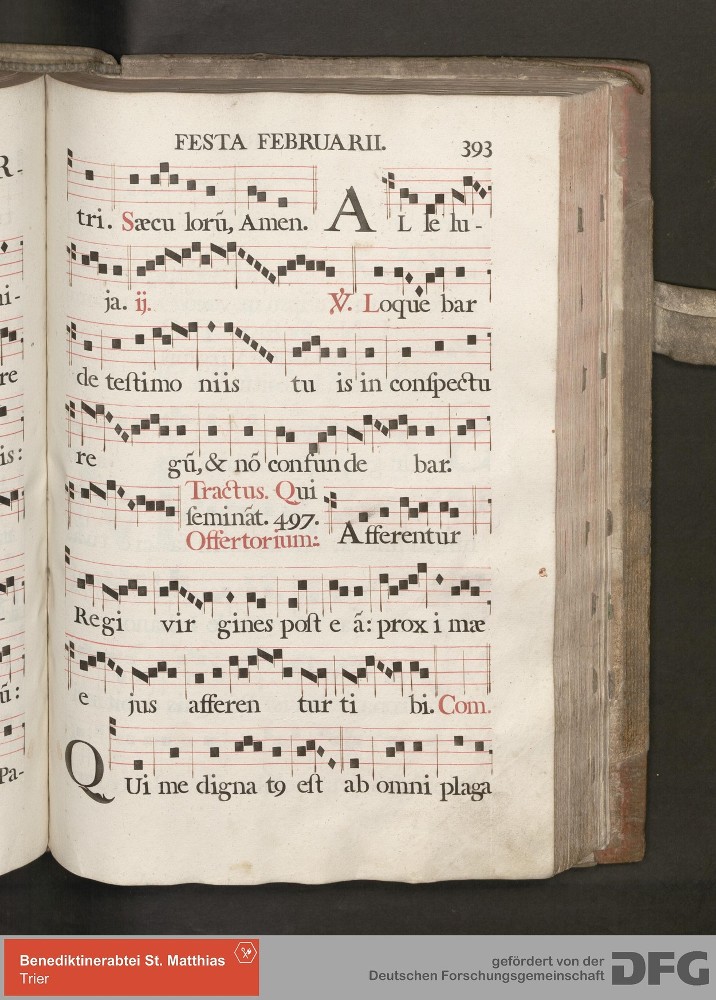 FESTA FEBRUARII. 393
tri. Sæcu lorũ, Amen. A L le lu-
ja. ij. ℣. Loque bar
de teſtimo niis tu is in conſpectu
re gũ, & nõ confun de bar.
Tractus. Qui
ſeminãt. 497.
Offertorium: Afferentur
Regi vir gines poſt e ã: prox i mæ
e jus afferen tur ti bi. Com.
QUi me digna tꝯ eſt ab omni plaga
R.
ni-
re
is:
ũ:
Pa-
Benediktinerabtei St. Matthias
Trier
gefördert von der
Deutschen Forschungsgemeinschaft DFG